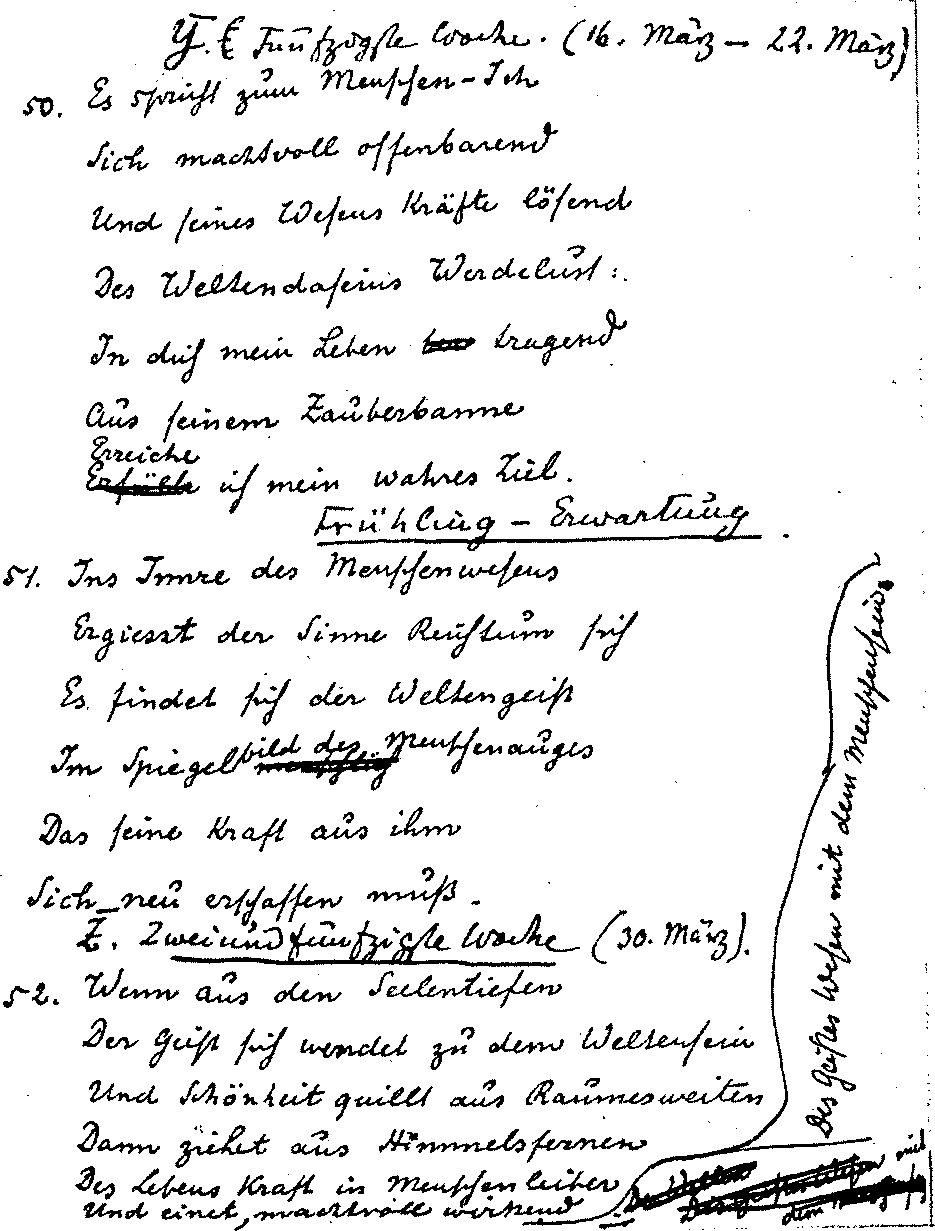 Y. Fünfzigste Woche. (16. März – 22. März)
50. Es spricht zum Menschen-Ich
Sich machtvoll offenbarend
Und seines Wesens Kräfte lösend
Des Weltendaseins Werdelust:
In dich mein Leben tragend
Aus seinem Zauberbanne
Erreiche
Erfülle ich mein wahres Ziel.
Frühling – Erwartung.
51. Ins Innre des Menschenwesens
Ergiesst der Sinne Reichtum sich
Es findet sich der Weltengeist
Im Spiegelbild des Menschenauges
Das seine Kraft aus ihm
Sich neu erschaffen muß.
Z. Zweiundfünfzigste Woche (30. März).
52. Wenn aus den Seelentiefen
Der Geist sich wendet zu dem Weltensein
Und Schönheit quillt aus Raumesweiten
Dann ziehet aus Himmelsfernen
Des Lebens Kraft in Menschenleiber
Und einet, machtvoll wirkend
Des Geistes Wesen mit dem Menschensein.